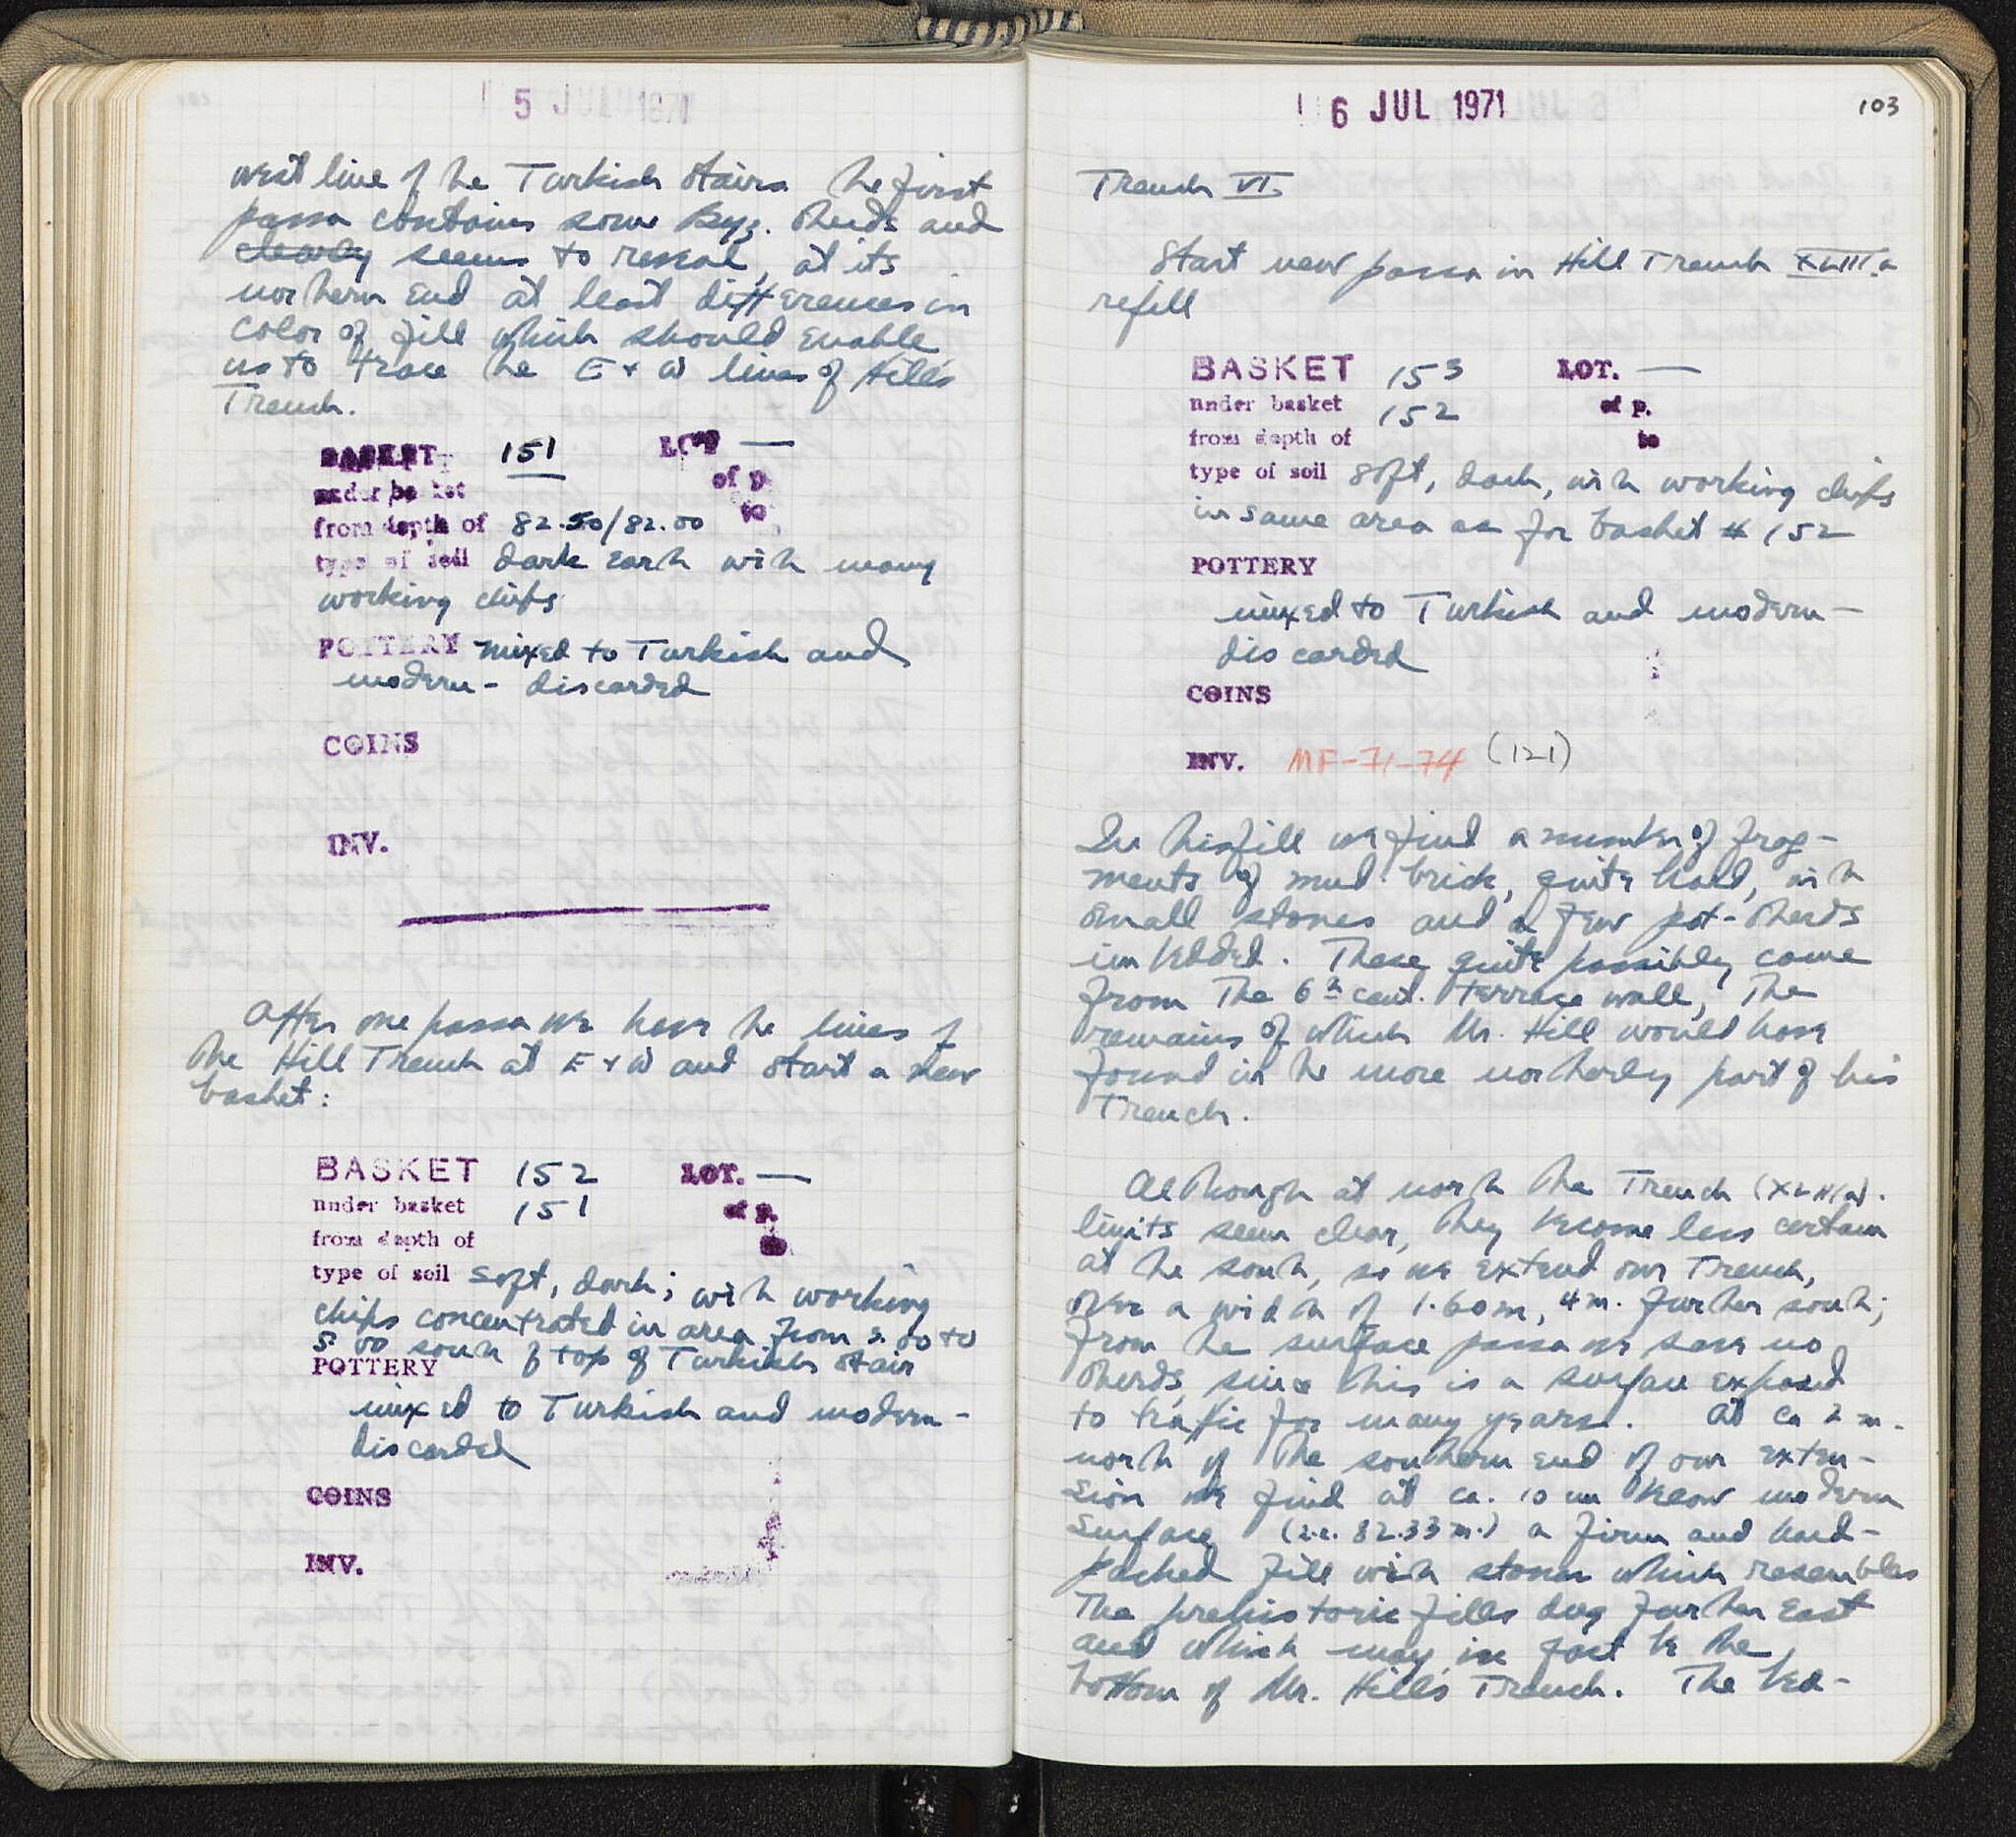 5 JUL 1971
west line of the Turkish stairs the first
passa contains some Byz. sherds and
clearly seems to reveal, at its
northern end at least differences in
color of fill which should enable
us to trace the E + W lines of Hill's
Trench.
BASKET 151 LOT —
under basket of p.
from depth of 82.50/82.00 to
type of soil dark earth with many
working chips
POTTERY mixed to Turkish and
modern - discarded
COINS
INV.
After one passa we have the lines of
the Hill Trench at E + W and start a new
basket:
BASKET 152 LOT. —
under basket 151 of p.
from depth of
type of soil soft, dark; with working
chips concentrated in area from 2.00 to
5.00 south of top of Turkish stair
POTTERY
mixed to Turkish and modern -
discarded
COINS
INV.
6 JUL 1971
103
Trench VI.
Start new passa in Hill Trench XLIII a
refill
BASKET 153 LOT. —
under basket 152 of p.
from depth of to
type of soil soft, dark, with working chips
in same area as for basket # 152
POTTERY
mixed to Turkish and modern —
discarded
COINS
INV. MF-71-74 (121)
In this fill we find a number of frag-
ments of mud brick, quite hard, with
small stones and a few pot-sherds
imbedded. These quite possibly come
from the 6th cent. terrace wall, the
remains of which Mr. Hill would have
found in the more northerly part of his
Trench.
Although at north the Trench
limits seem clear, they become less certain
at the south, so we extend our Trench,
over a width of 1.60m, 4m. further south;
from the surface passa we save no
sherds, since this is a surface exposed
to trafic for many years. At ca 2 m.
north of the southern end of our exten-
sion we find at ca. 10 cm below modern
surface (i.e. 82.33 m.) a firm and hard-
packed fill with stones which resembles
the prehistoric fills dug further East
and which may in fact be the
bottom of Mr. Hill's Trench. The bed-